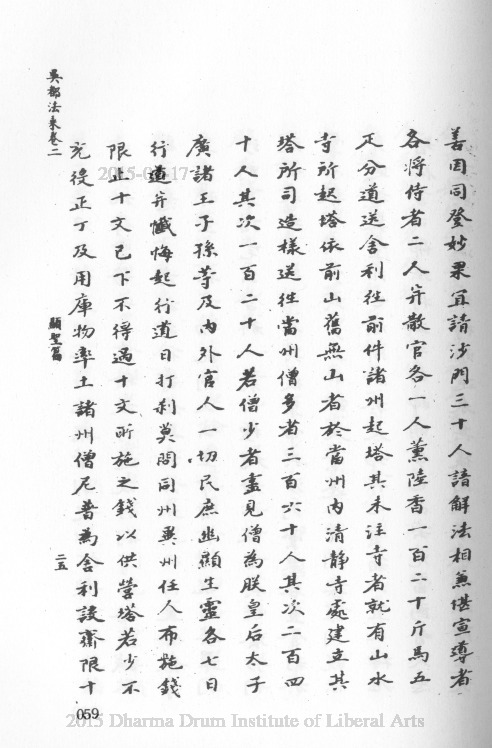 善因同登妙果宜請沙門三十人諳解法相兼堪宣導者
各將侍者二人并散官各一人薰陸香一百二十斤馬五
疋分道送舍利往前件諸州起塔其未注寺者就有山水
寺所起塔依前山舊無山者於當州內清静寺處建立其
塔所司造樣送往當州僧多者三百六十人其次二百四
十人其次一百二十人若僧少者盡見僧為朕皇后太子
廣諸王子孫等及內外官人一切民庶幽顯生靈各七日
行道并懺悔起行道日打刹莫問同州異州任人布施錢
限止十文已下不得過十文所施之錢以供營塔若少不
充役正丁及用庫物率土諸州僧尼普為舍利設齋限十
吳都法乘卷二 顯聖篇 二五
059
2015 Dharma Drum Institute of Liberal Arts